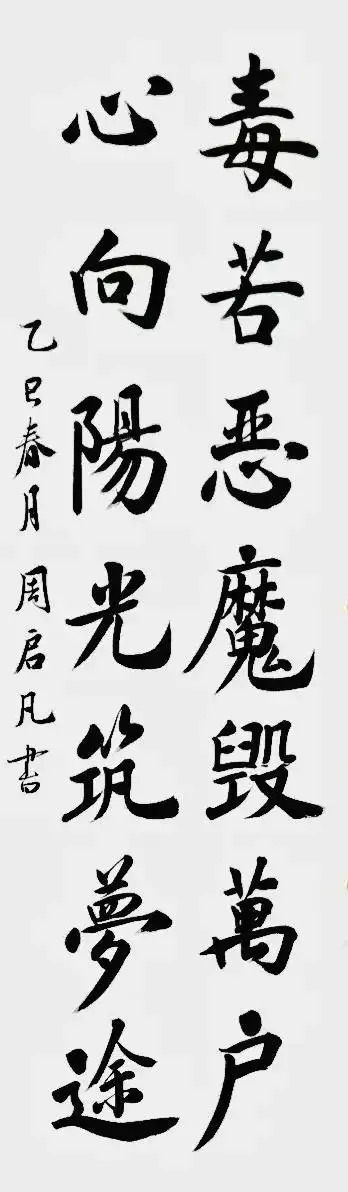 毒若恶魔毁萬户
心向陽光筑夢途
乙巳春月周启凡书